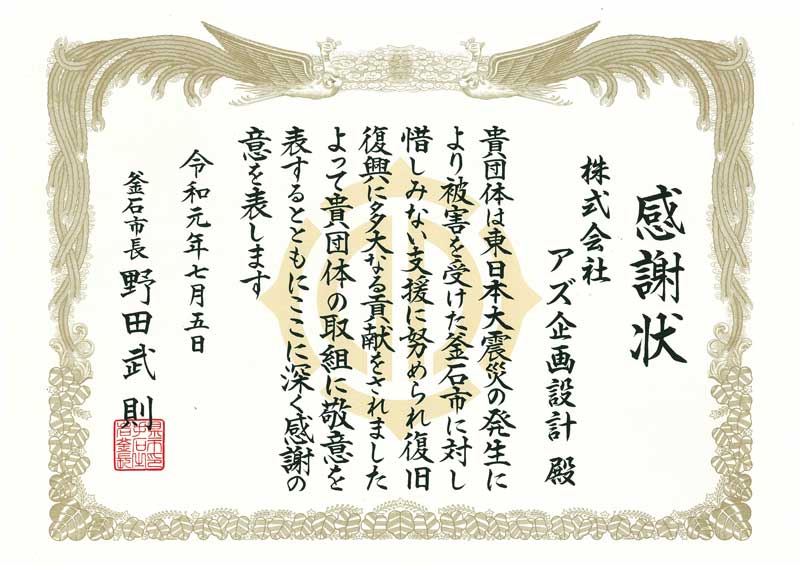 感謝状
株式会社
アズ企画設計 殿
貴団体は東日本大震災の発生に
より被害を受けた釜石市に対し
惜しみない支援に努められ復旧
復興に多大なる貢献をされました
よって貴団体の取組に敬意を
表するとともにここに深く感謝の
意を表します
令和元年七月五日
釜石市長 野田武則